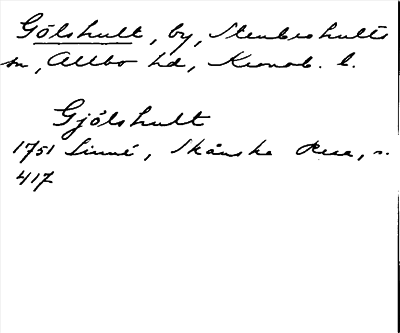 Gölshult, by, Stenbrohults
sn, Allbo hd, Kronob. l.
Gjölshult
1751 Linné, Skånska Resa, s.
417